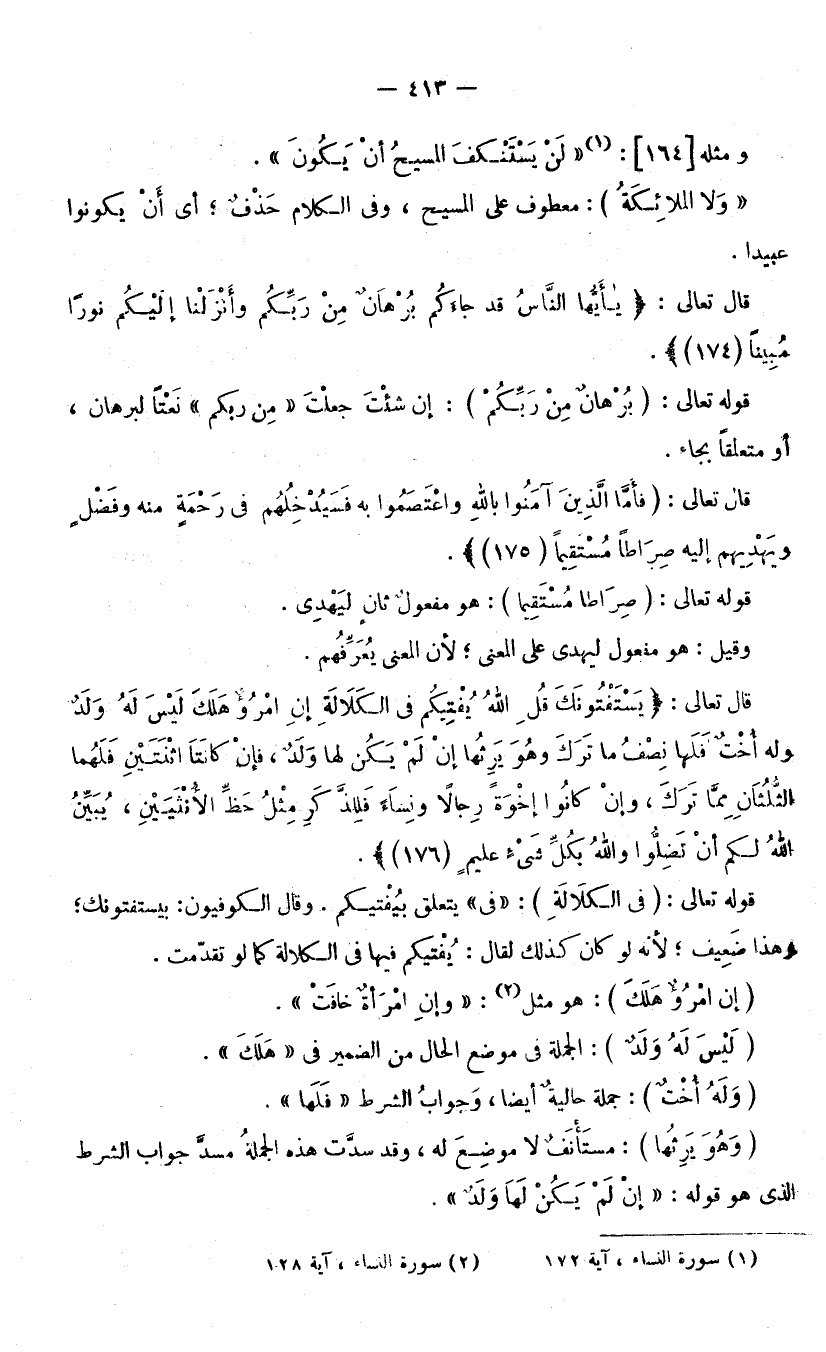 — ٤١٣ —
و مثله [١٦٤] : (١) « لَنْ يَسْتَنْكفَ المسيحُ أنْ يَكُونَ » .
« وَلا الملائِكَةُ ) : معطوف على المسيح ، وفى الكلام حَذْفٌ ؛ أى أَنْ يكونوا
عبيدا .
قال تعالى : ﴿ يٰأَيُّها النَّاسُ قد جاءَكُم بُرْهانٌ مِنْ رَبِّكُم وأَنْزَلْنا إلَيْكُم نورًا
مُبِيناً (١٧٤) ﴾ .
قوله تعالى : ( بُرْهانٌ مِنْ رَبِّكُمْ ) : إن شئْتَ جعلْتَ « مِن ربكم » نَعْتًا لبرهان ،
أو متعلقاً بجاء .
قال تعالى : ( فأمَّا الَّذِينَ آمَنُوا باللهِ واعْتَصَمُوا به فَسَيُدْخِلُهُم فى رَحْمَةٍ منه وفَضْلٍ
ويَهْدِيهم إليه صِرَاطاً مُسْتَقِيماً (١٧٥) ﴾ .
قوله تعالى : ( صِرَاطا مُسْتَقِيما ) : هو مفعولٌ ثانٍ ليَهْدِى .
وقيل : هو مفعول ليهدى على المعنى ؛ لأن المعنى يُعَرِّفُهم .
قال تعالى : ﴿ يَسْتَفْتُونَكَ قُلِ اللهُ يُفْتِيكُم فى الكَلَالَةِ إنِ امْرُؤٌ هَلَكَ لَيْسَ لَهُ وَلَدٌ
وله أُخْتٌ فَلَها نِصْفُ ما تَرَكَ وهُوَ يَرِثُها إنْ لَمْ يَكُن لها وَلَدٌ ، فإنْ كانَتَا اثْنَتَيْنِ فَلَهُما
الثُّلُثَانِ مِمَّا تَرَكَ ، وإنْ كانُوا إخْوَةً رِجالًا ونِساءً فَلِلذَّكَرِ مِثْلُ حَظِّ الأُنْثَيَيْنِ ، يُبَيِّنُ
اللهُ لكم أنْ تَضِلُّوا واللهُ بكُلِّ شَىْءٍ عليمٍ (١٧٦) ﴾ .
قوله تعالى : ( فى الكَلَالَةِ ) : «فى» يتعلق بيُفْتيكم . وقال الكوفيون: بيستفتونك؛
وهذا ضَعِيف ؛ لأنه لو كان كذلك لقال : يُفْتيكم فيها فى الكلالة كما لو تقدّمت .
( إن امْرُؤٌ هَلَكَ ) : هو مثل (٢) : « وإنِ امْرَأةٌ خافَتْ » .
( لَيْسَ لَهُ وَلَدٌ ) : الجملة فى موضع الحال من الضمير فى « هَلَكَ » .
( وَلَهُ أُخْتٌ ) : جملة حاليةٌ أيضا ، وَجوابُ الشرط « فَلَها » .
( وَهُوَ يَرِثُها ) : مستَأْنَفٌ لا موضِعَ له ، وقد سدَّت هذه الجملةُ مسدَّ جواب الشرط
الذى هو قوله : « إنْ لَمْ يَكُنْ لَهَا وَلَدٌ » .
(١) سورة النساء ، آية ١٧٢ (٢) سورة النساء ، آية ١٢٨